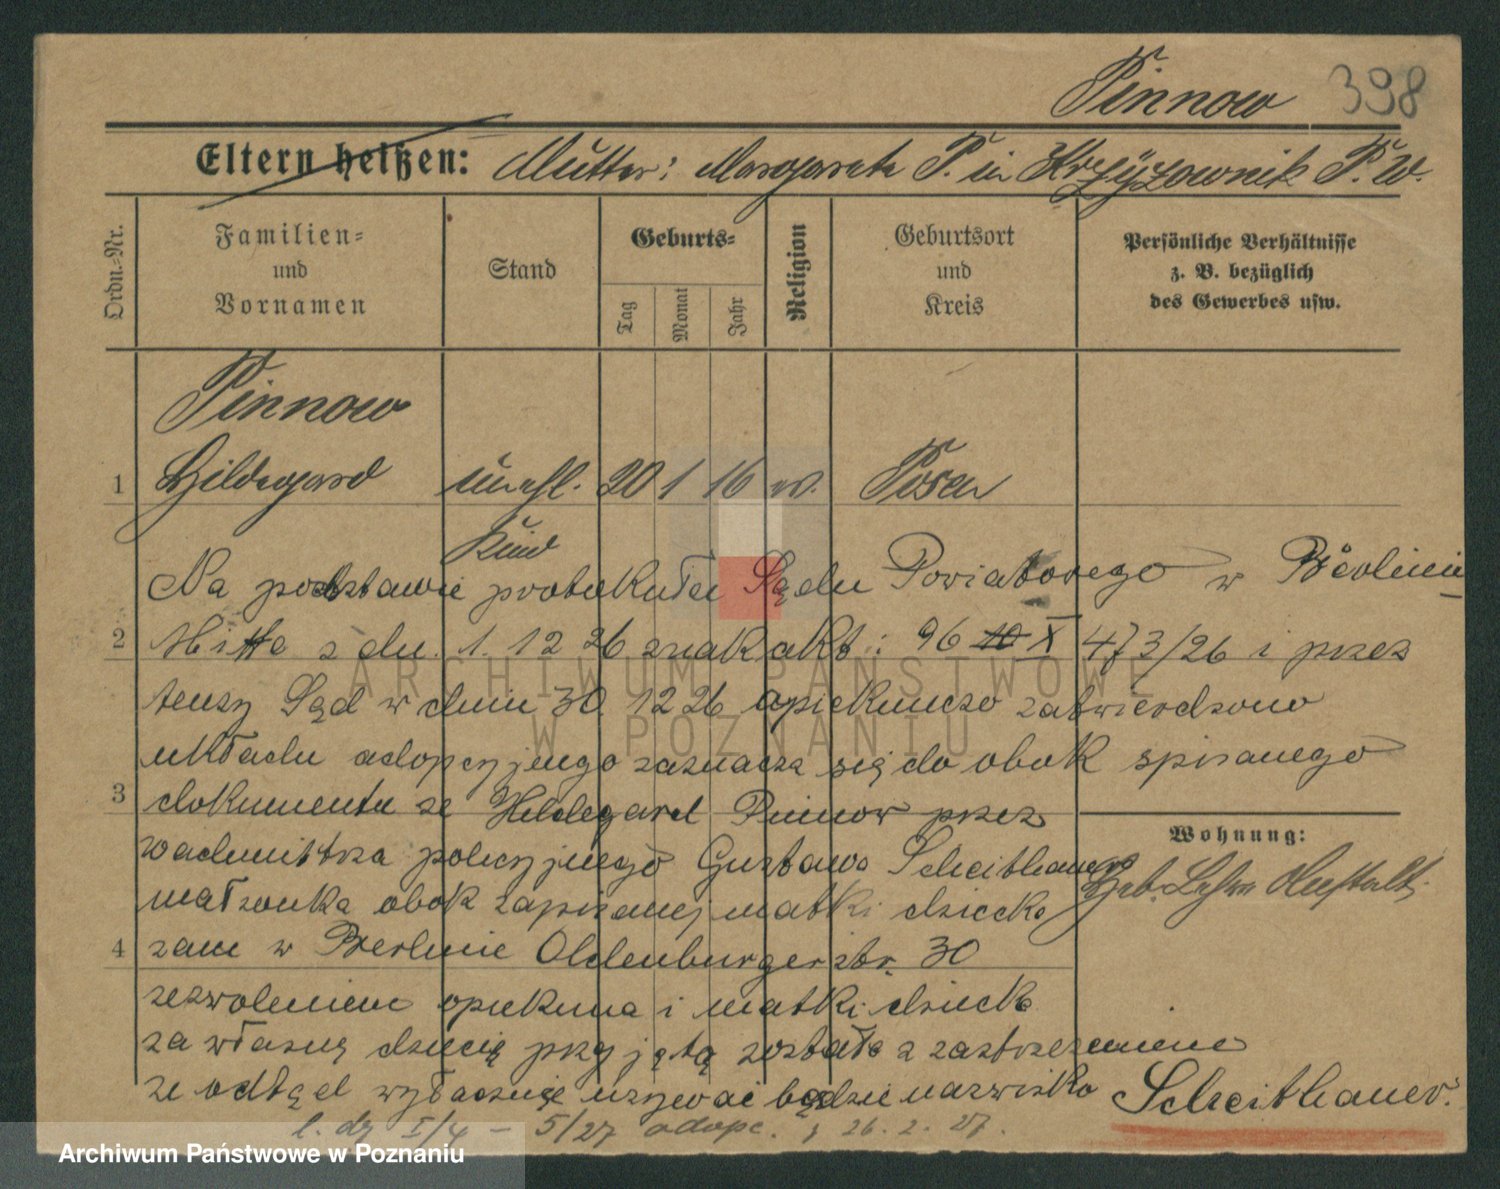 Pinnow 398
Eltern heißen: Mutter: Margarete P. in Krzyżownik P. W.
Ordn.-Nr.
Familien- und Vornamen
Stand
Geburts-
Tag
Monat
Jahr
Religion
Geburtsort und Kreis
Persönliche Verhältnisse z. B. bezüglich des Gewerbes usw.
Pinnow
1 Hildegard unehl. 20 1 16 w. Posen
Kind
Na podstawie protokułu Sądu Powiatowego w Berlinie
2 Mitte z dn. 1. 12 26 znak akt: 96 10 X 473/26 i przez
tenże Sąd w dniu 30. 12 26 opiekunczo zatwierdzono
układu adopcyjnego zaznacza się do obok spisanego
3 dokumentu ze Hildegard Pinnow przez
Wohnung:
wachmistrza policyjnego Gustawa Scheithauera
małżonka obok zapisanej matki dziecka
4 zam w Berlinie Oldenburgerstr. 30
zezwoleniem opiekuna i matki dziecka
za własną dziecię przyjętą została z zastrzezeniem
ze odtąd wyłącznie uzywać będzie nazwisko Scheithauer.
l. dz I/4 – 5/27 adopc. 26. 2. 27.
ARCHIWUM PAŃSTWOWE
W POZNANIU
Archiwum Państwowe w Poznaniu